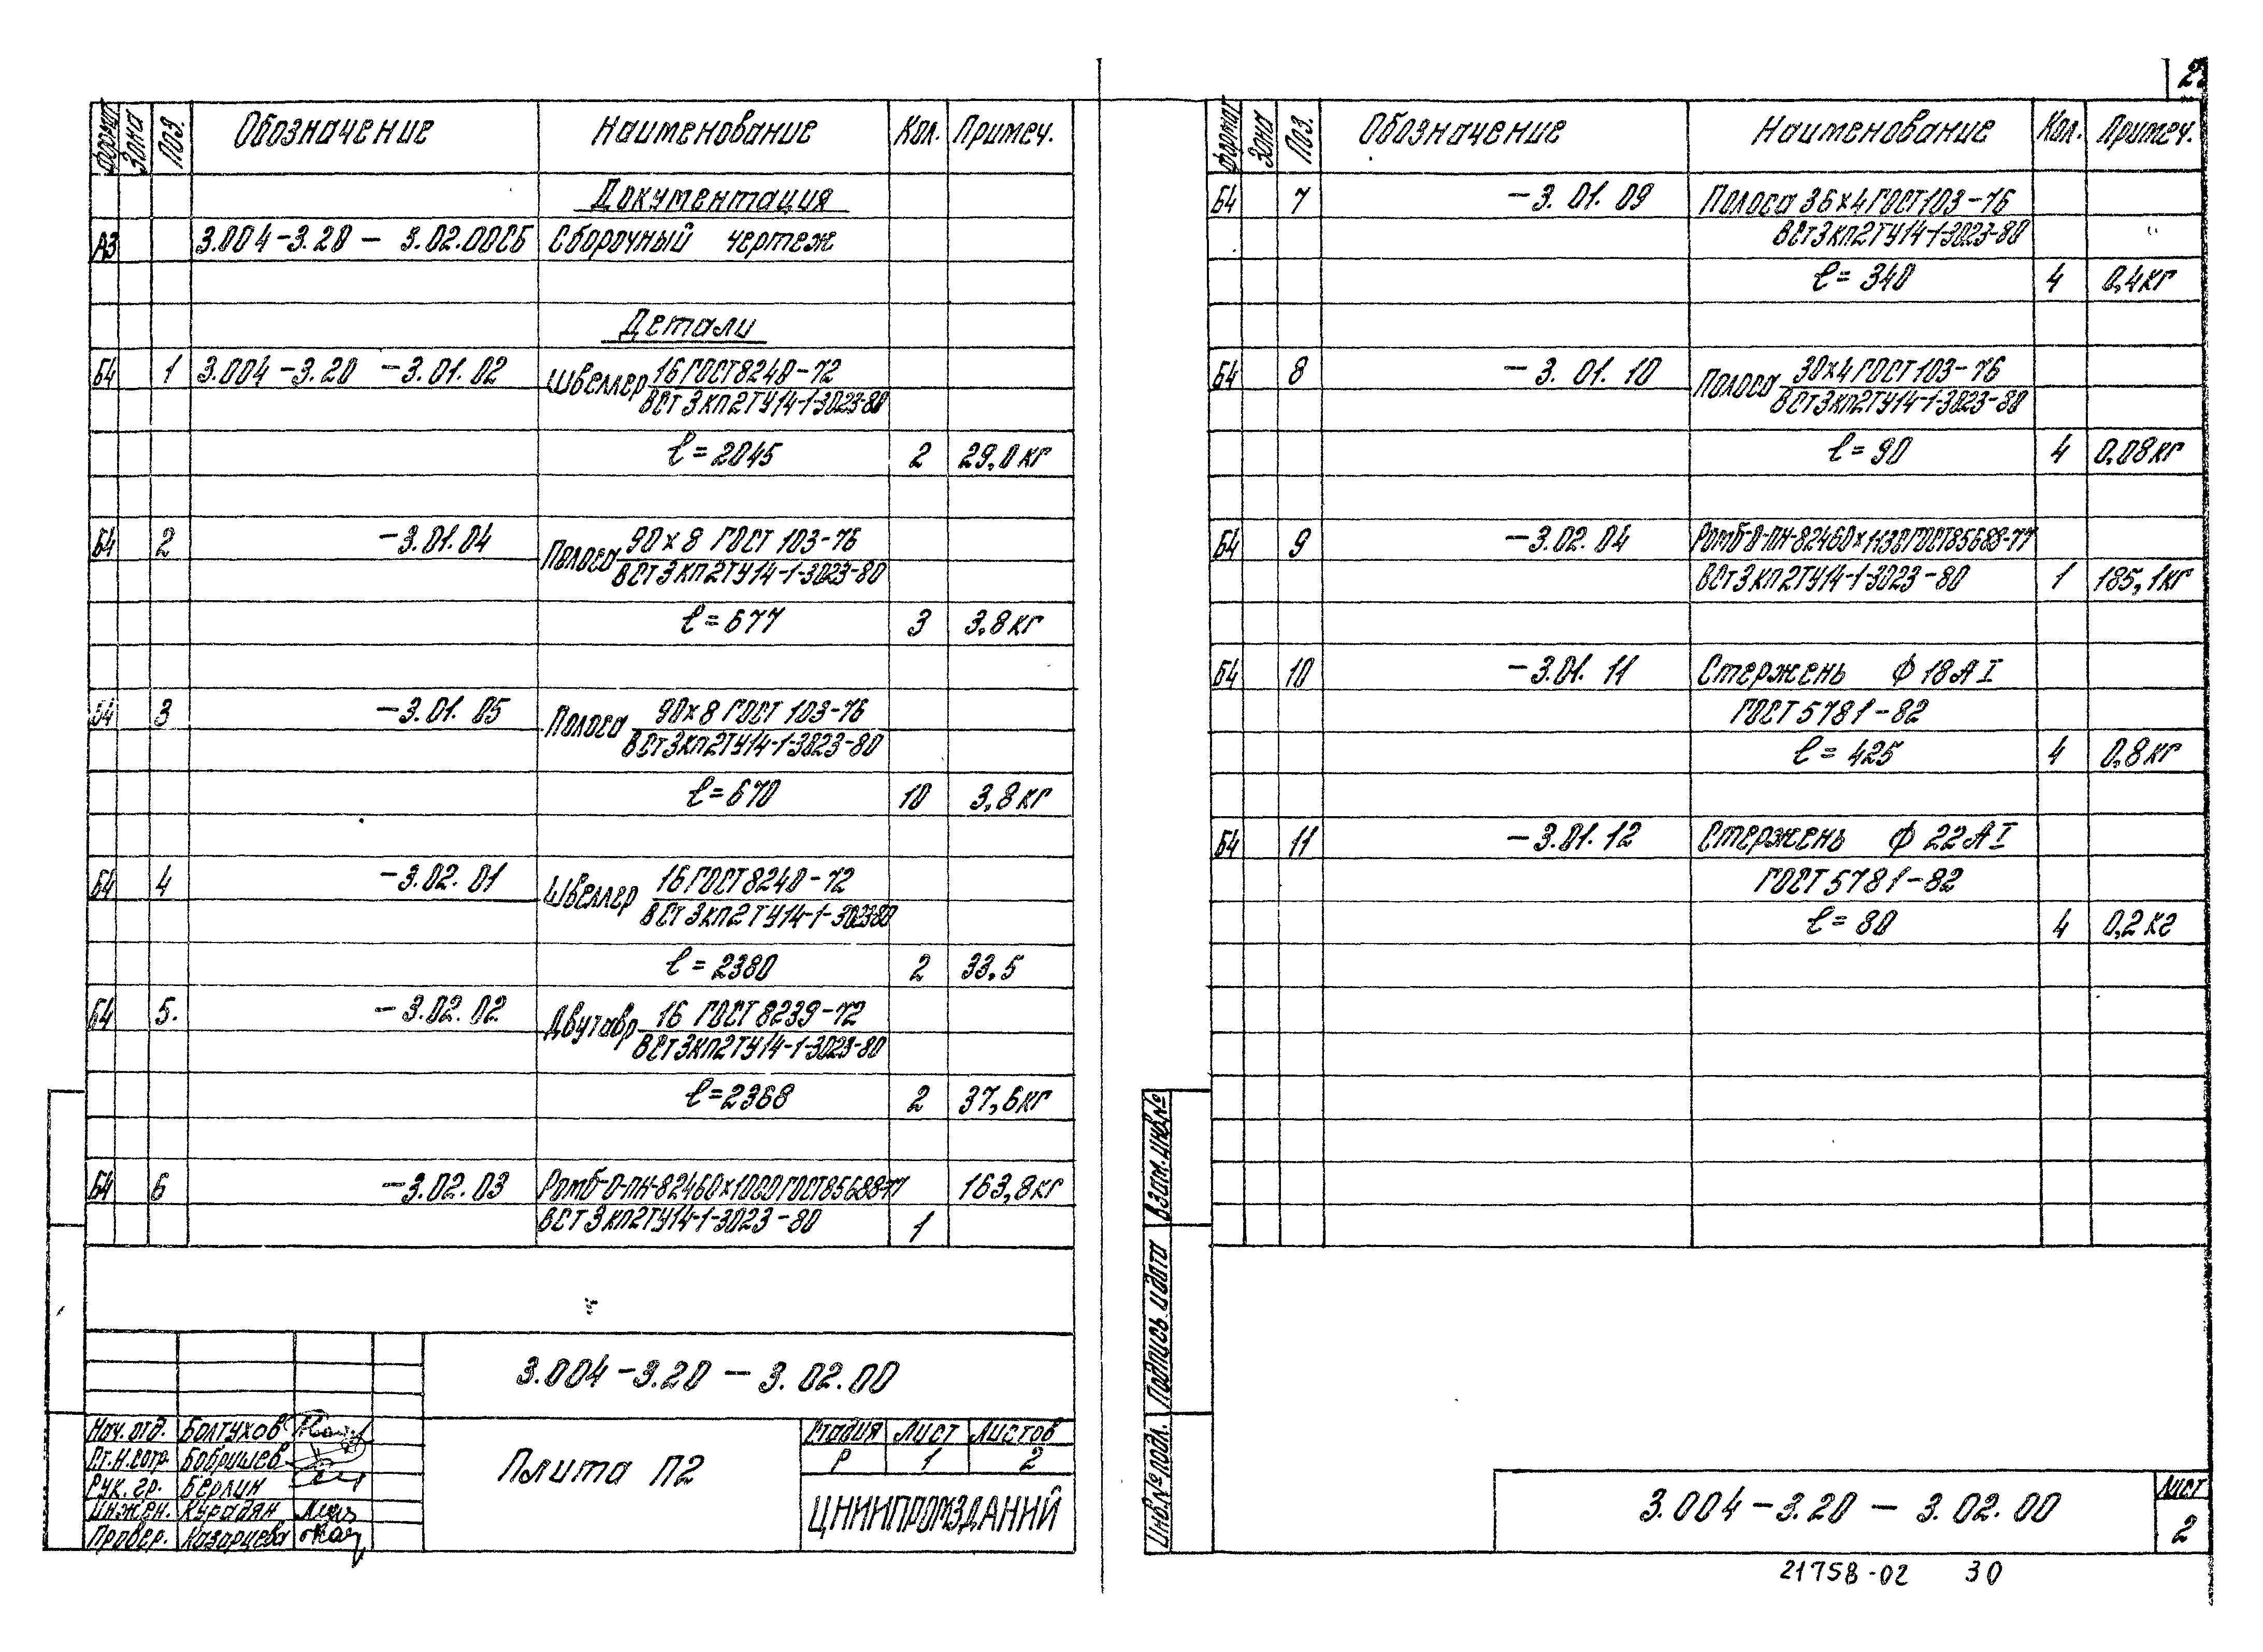 Формат Зона Поз. Обозначение Наименование Кол. Примеч.
Документация
А3 3.004-3.20 - 3.02.00СБ Сборочный чертеж
Детали
Б4 1 3.004-3.20 -3.01.02 Швеллер 16 ГОСТ 8240-72
ВСт3кп2ТУ14-1-3023-80
ℓ=2045 2 29,0кг
Б4 2 -3.01.04 Полоса 90×8 ГОСТ 103-76
ВСт3кп2ТУ14-1-3023-80
ℓ=677 3 3,8кг
Б4 3 -3.01.05 Полоса 90×8 ГОСТ 103-76
ВСт3кп2ТУ14-1-3023-80
ℓ=670 10 3,8кг
Б4 4 -3.02.01 Швеллер 16 ГОСТ 8240-72
ВСт3кп2ТУ14-1-3023-80
ℓ=2380 2 33.5
Б4 5. -3.02.02 Двутавр 16 ГОСТ 8239-72
ВСт3кп2ТУ14-1-3023-80
ℓ=2368 2 37,6кг
Б4 6 -3.02.03 Ромб-О-ПН-8 2460×1000 ГОСТ 8568-77 163,8кг
ВСт3кп2ТУ14-1-3023-80 1
3.004-3.20 - 3.02.00
Плита П2
Стадия Лист Листов
Р 1 2
ЦНИИПРОМЗДАНИЙ
Нач. отд. Болтухов
Ст.н.сотр. Бобришев
Рук. гр. Берлин
Инжен. Курадян
Провер. Казарцева
Формат Зона Поз. Обозначение Наименование Кол. Примеч.
Б4 7 -3.01.09 Полоса 36×4 ГОСТ 103-76
ВСт3кп2ТУ14-1-3023-80
ℓ=340 4 0,4кг
Б4 8 -3.01.10 Полоса 30×4 ГОСТ 103-76
ВСт3кп2ТУ14-1-3023-80
ℓ=90 4 0,08кг
Б4 9 -3.02.04 Ромб-О-ПН-8 2460×1130 ГОСТ 8568-77
ВСт3кп2ТУ14-1-3023-80 1 185,1кг
Б4 10 -3.01.11 Стержень Ф 18АI
ГОСТ 5781-82
ℓ=425 4 0,8кг
Б4 11 -3.01.12 Стержень Ф 22АI
ГОСТ 5781-82
ℓ=80 4 0,2кг
Взам. инв.№
Подпись и дата
Инв.№ подл.
3.004-3.20 - 3.02.00
Лист
2
21758-02 30